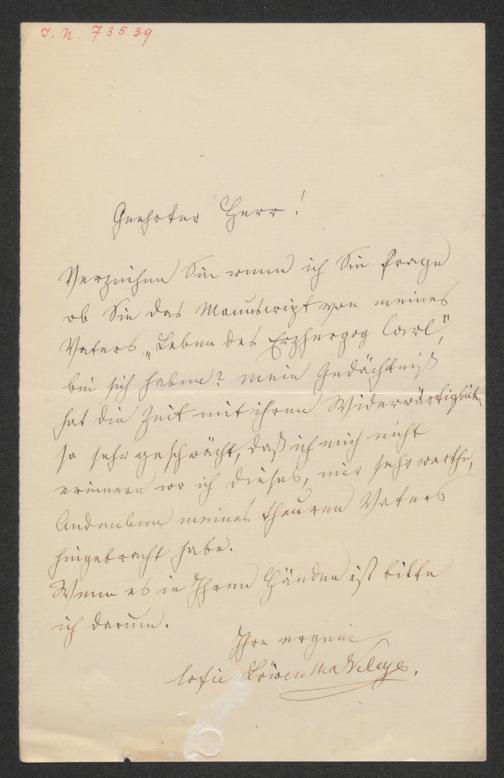 I. N. 73539
Geehrter Herr!
Verzeihen Sie wenn ich Sie frage
ob Sie das Manuscript von meines
Vaters „Leben des Erzherzog Carl",
bei sich haben? Mein Gedächtniß
hat die Zeit mit ihren Widerwärtigkeiten
so sehr geschwächt, daß ich mich nicht
erinnere wo ich dieses, mir sehr werthe,
Andenken meines theuren Vaters
hingebracht habe.
Wenn es in Ihren Händen ist bitte
ich darum.
Ihre
Sofie Löwenthal